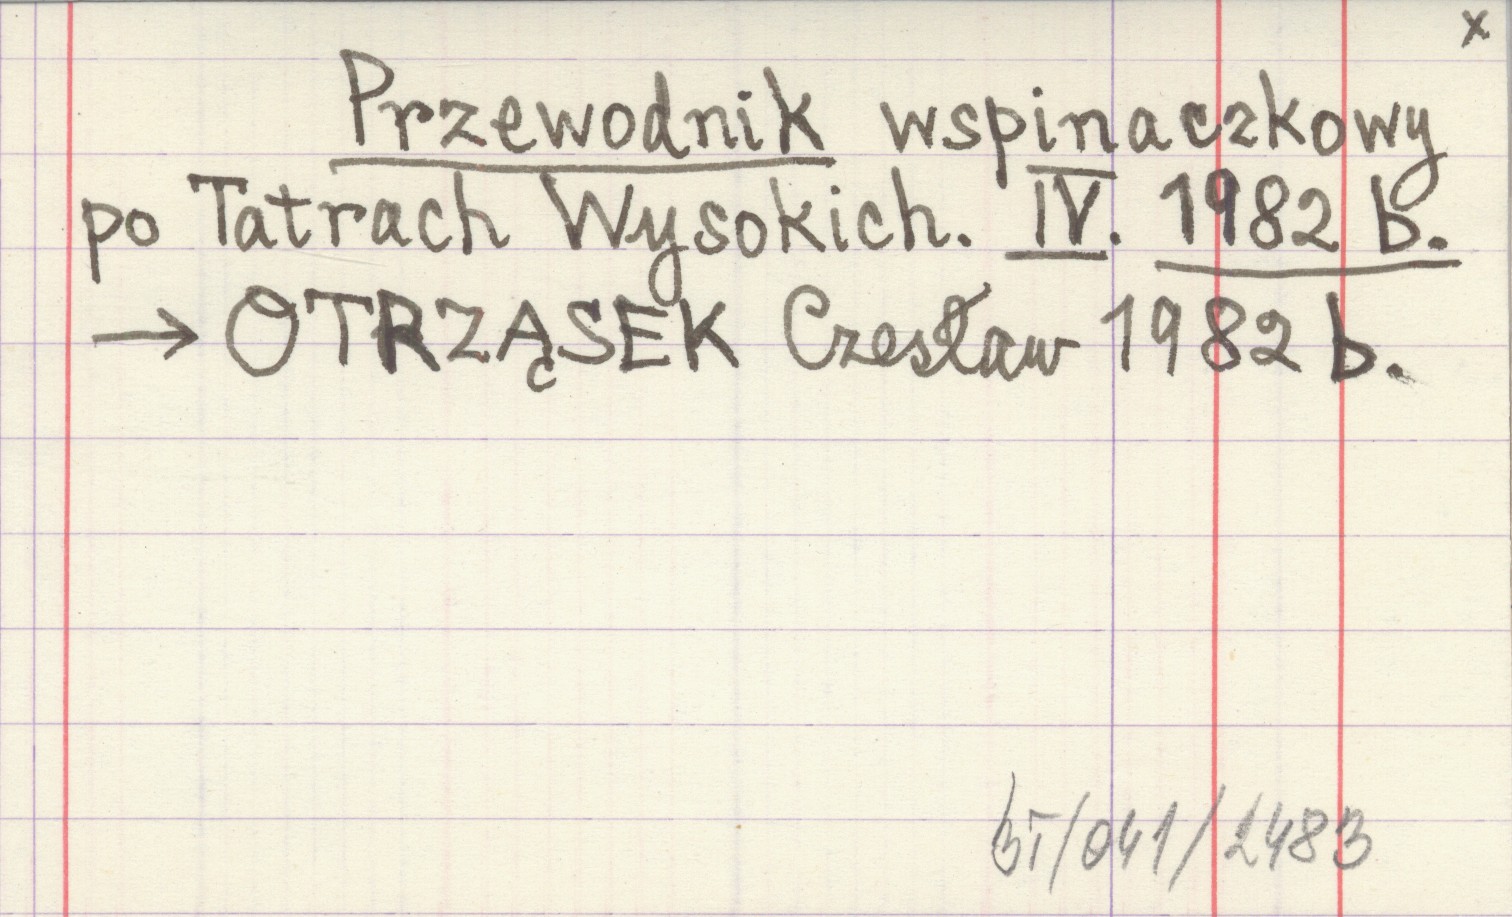 x
Przewodnik wspinaczkowy
po Tatrach Wysokich. IV. 1982 b.
→ OTRZĄSEK Czesław 1982 b.
bT/041/2483